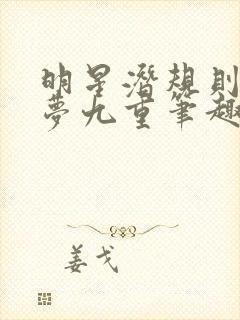 明星潛規則
夢九重筆趣
姜戈